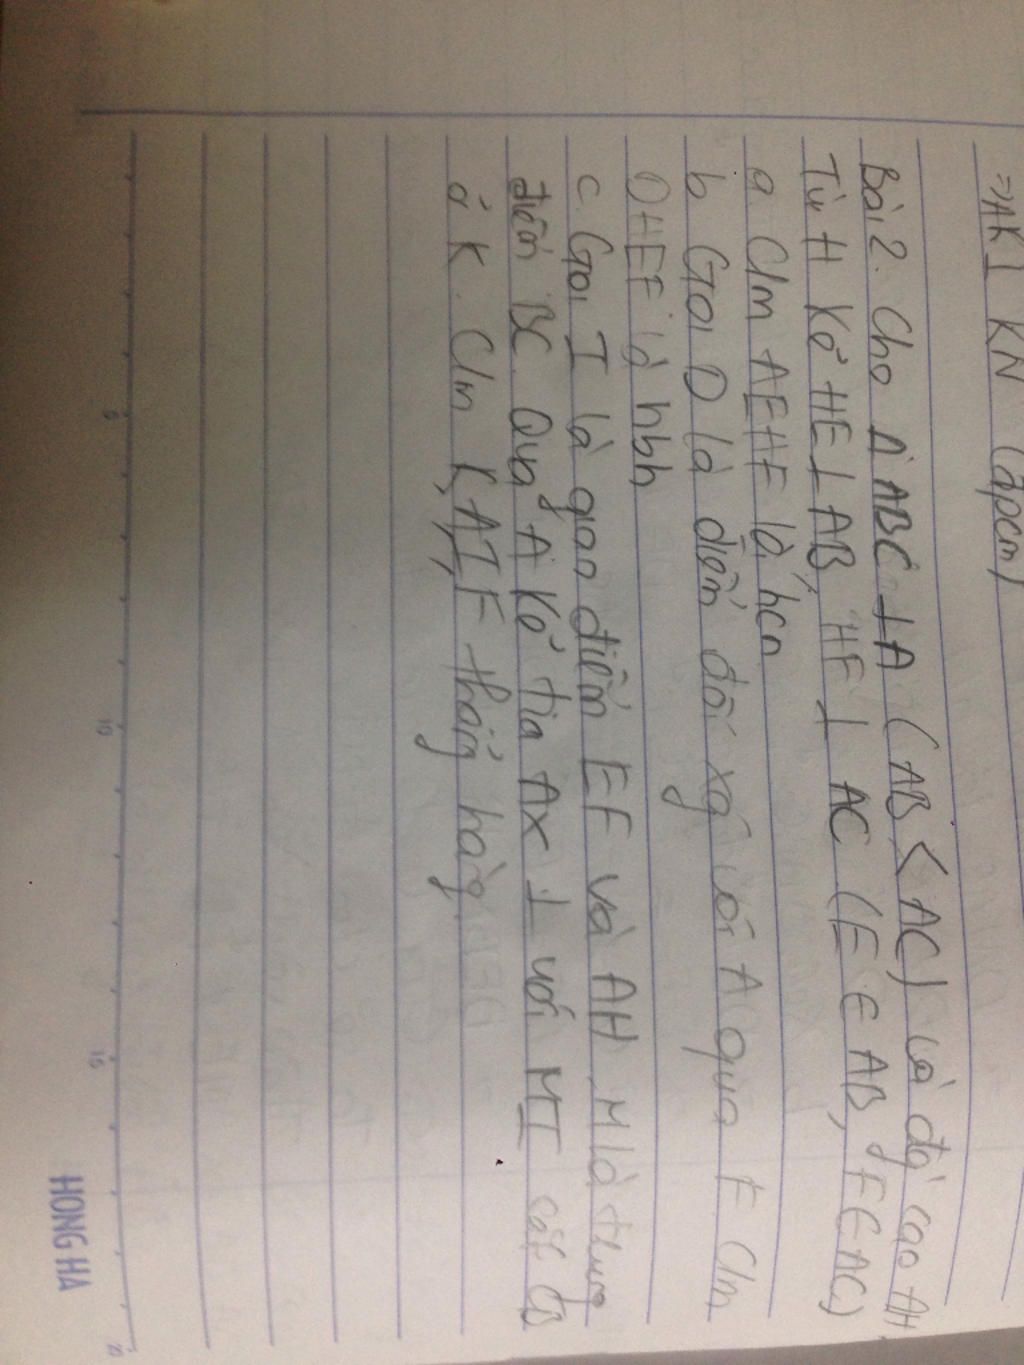 => AK ⊥ KN (đpcm)
Bài 2. Cho Δ ABC ⊥ A (AB < AC) và đg cao AH.
Từ H Kẻ HE ⊥ AB, HF ⊥ AC (E ∈ AB, F ∈ AC)
a C/m AEHF là hcn
b Gọi D là điểm đối xg với A qua F C/m
DHEF là hbh
c. Gọi I là giao điểm EF và AH, M là trung
điểm BC. Qua A Kẻ tia Ax ⊥ với MI cắt CB
ở K. C/m K, A, I, F thẳng hàng.
5
10
15
20
HONG HA